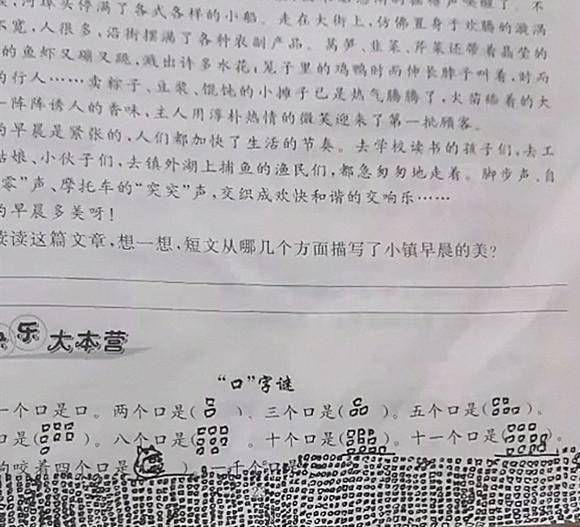 ,河埠头停满了各式各样的小船。走在大街上,仿佛置身于欢腾的漩涡
不宽,人很多,沿街摆满了各种农副产品。莴笋、韭菜、芹菜还带着晶莹的
的鱼虾又蹦又跳,溅出许多水花;笼子里的鸡鸭时而伸长脖子叫着,时而
的行人……卖粽子、豆浆、馄饨的小摊子已是热气腾腾了,火苗舔着的大
一阵阵诱人的香味,主人用淳朴热情的微笑迎来了第一批顾客。
的早晨是紧张的,人们都加快了生活的节奏。去学校读书的孩子们,去工
姑娘、小伙子们,去镇外湖上捕鱼的渔民们,都急匆匆地走着。脚步声、自
零”声、摩托车的“突突”声,交织成欢快和谐的交响乐……
的早晨多美呀!
读读这篇文章,想一想,短文从哪几个方面描写了小镇早晨的美?
乐大本营
“口”字谜
一个口是口。两个口是( )、三个口是( )。五个口是( )。
口是( )。八个口是( )。十个口是( )。十一个口是( )。
的咬着四个口是( )。一千个口是